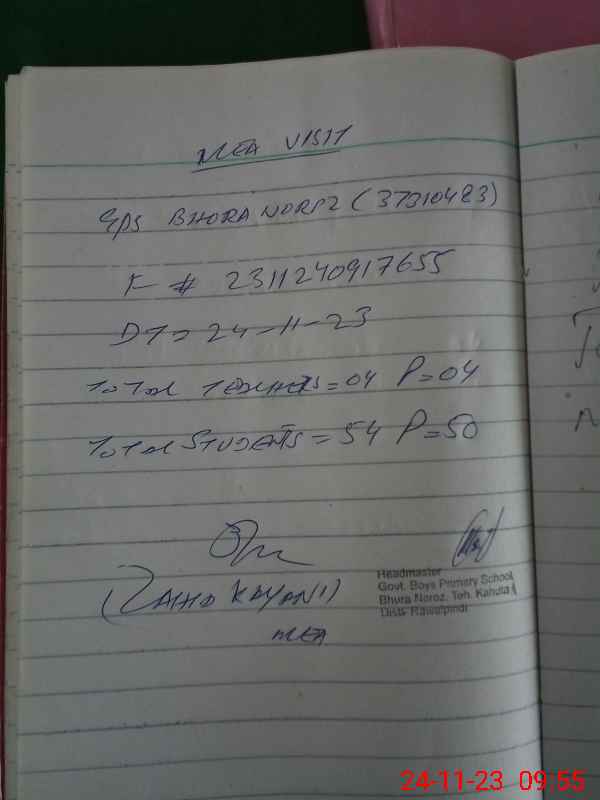 MEA VISIT
GPS BHORA NOROZ (37310483)
F # 2311240917655
DT= 24-11-23
Total Teachers = 04 P=04
Total Students = 54 P=50
(ZAHID KAYANI)
MEA
Headmaster
Govt. Boys Primary School
Bhura Noroz. Teh. Kahuta
Distt Rawalpindi
24-11-23 09:55